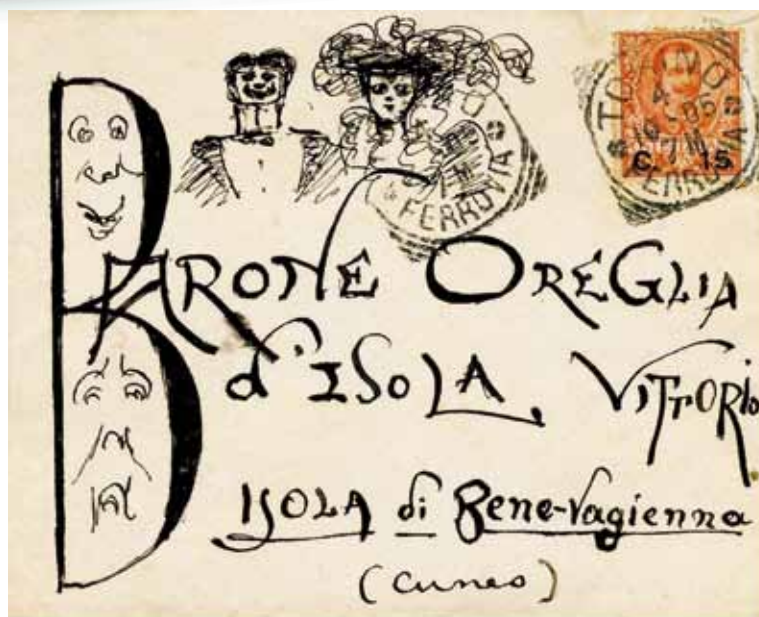 TORINO
4 - 05
FERROVIA
C. 15
FERROVIA
BARONE OREGLIA
d'ISOLA, VITTORIO
ISOLA di Bene-Vagienna
(Cuneo)